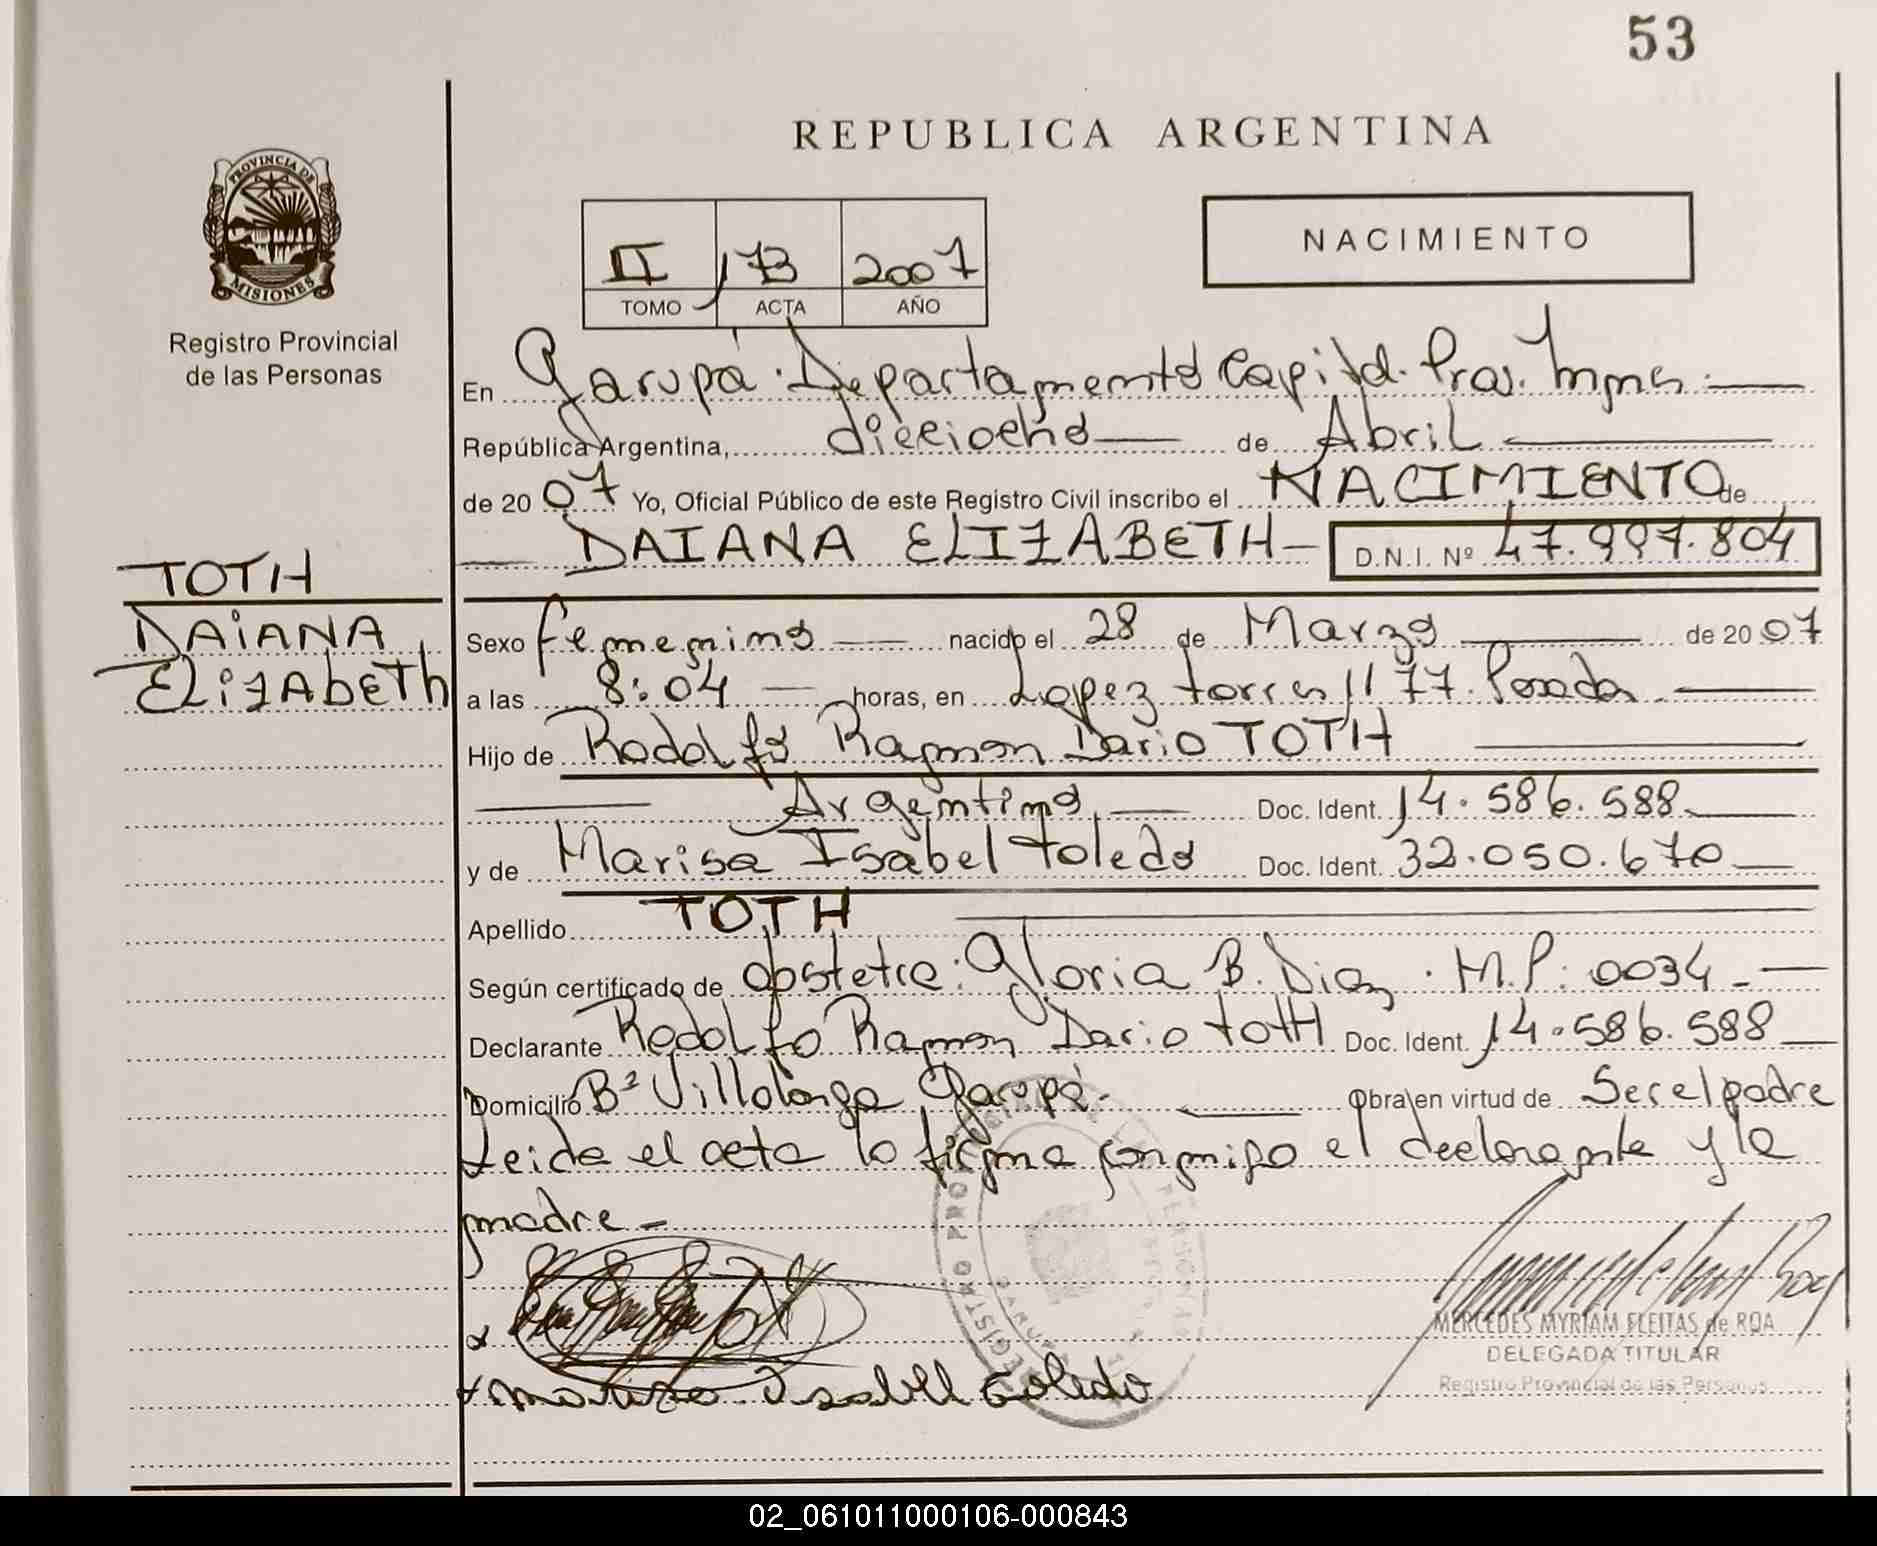 53
REPUBLICA ARGENTINA
PROVINCIA DE
MISIONES
Registro Provincial
de las Personas
II 173 2007
TOMO ACTA AÑO
NACIMIENTO
En Garupá. Departamento Capital. Prov. Mnes.
República Argentina, dieciocho de Abril
de 2007 Yo, Oficial Público de este Registro Civil inscribo el NACIMIENTO de
DAIANA ELIZABETH D.N.I. Nº 47.997.804
TOTH
DAIANA
ELIZAbETh
Sexo femenino nacido el 28 de Marzo de 2007
a las 8:04 horas, en Lopez torres 1177. Posadas
Hijo de Rodolfo Ramon Dario TOTH
Argentino Doc. Ident. 14.586.588
y de Marisa Isabel toledo Doc. Ident. 32.050.670
Apellido TOTH
Según certificado de obstetra: Gloria B. Diaz. M.P: 0034
Declarante Rodolfo Ramon Dario totH Doc. Ident. 14.586.588
Domicilio Bº Villalonga Garupá. Obra en virtud de Ser el padre
Leida el acta lo firma conmigo el declarante y la
madre
Isabell Toledo
MERCEDES MYRIAM FLEITAS de ROA
DELEGADA TITULAR
Registro Provincial de las Personas
02_061011000106-000843